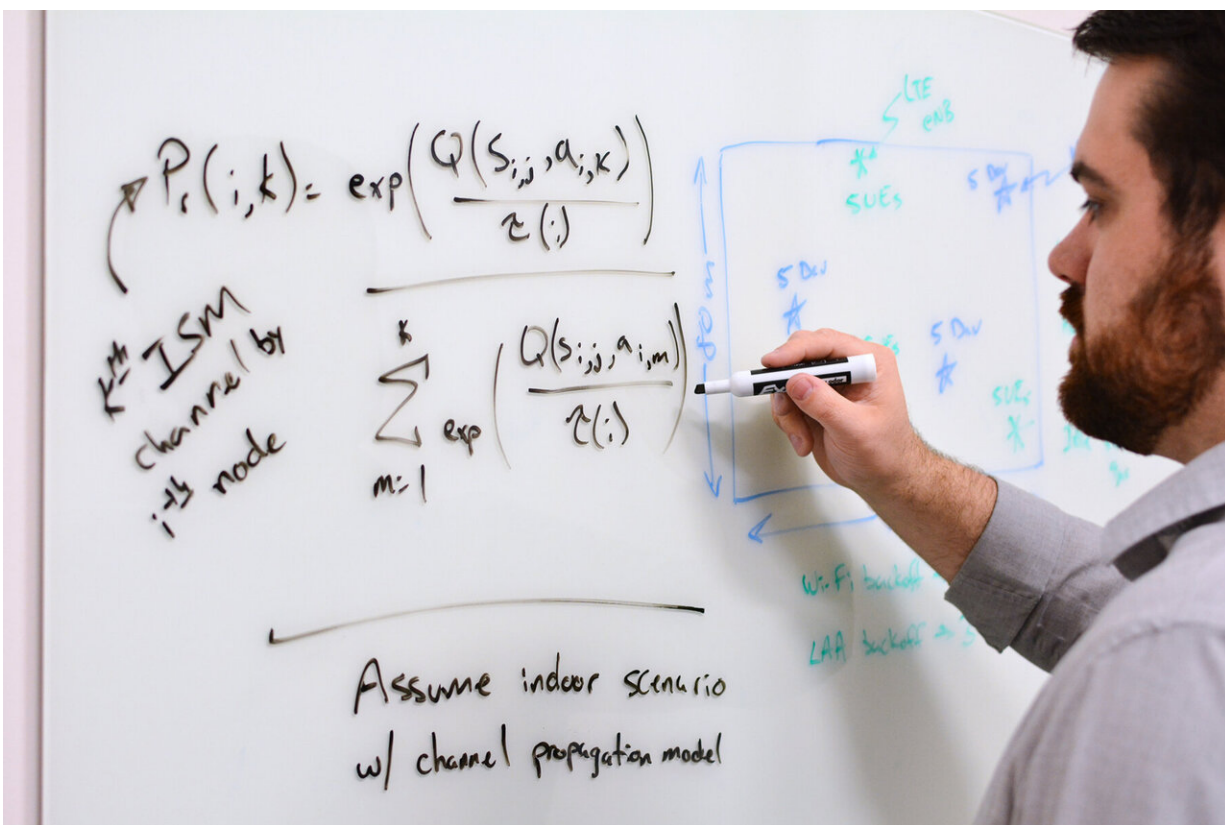 Pr(i,k) = exp(Q(s_{i,j}, a_{i,k}) / τ(i))
K
Σ exp(Q(s_{i,j}, a_{i,m}) / τ(i))
m=1
kth ISM
channel by
ith node
Assume indoor scenario
w/ channel propagation model
LTE
eNB
5UEs
5 Dev
5 Dev
5 Dev
5UEs
80m
Wi-Fi backoff
LAA backoff